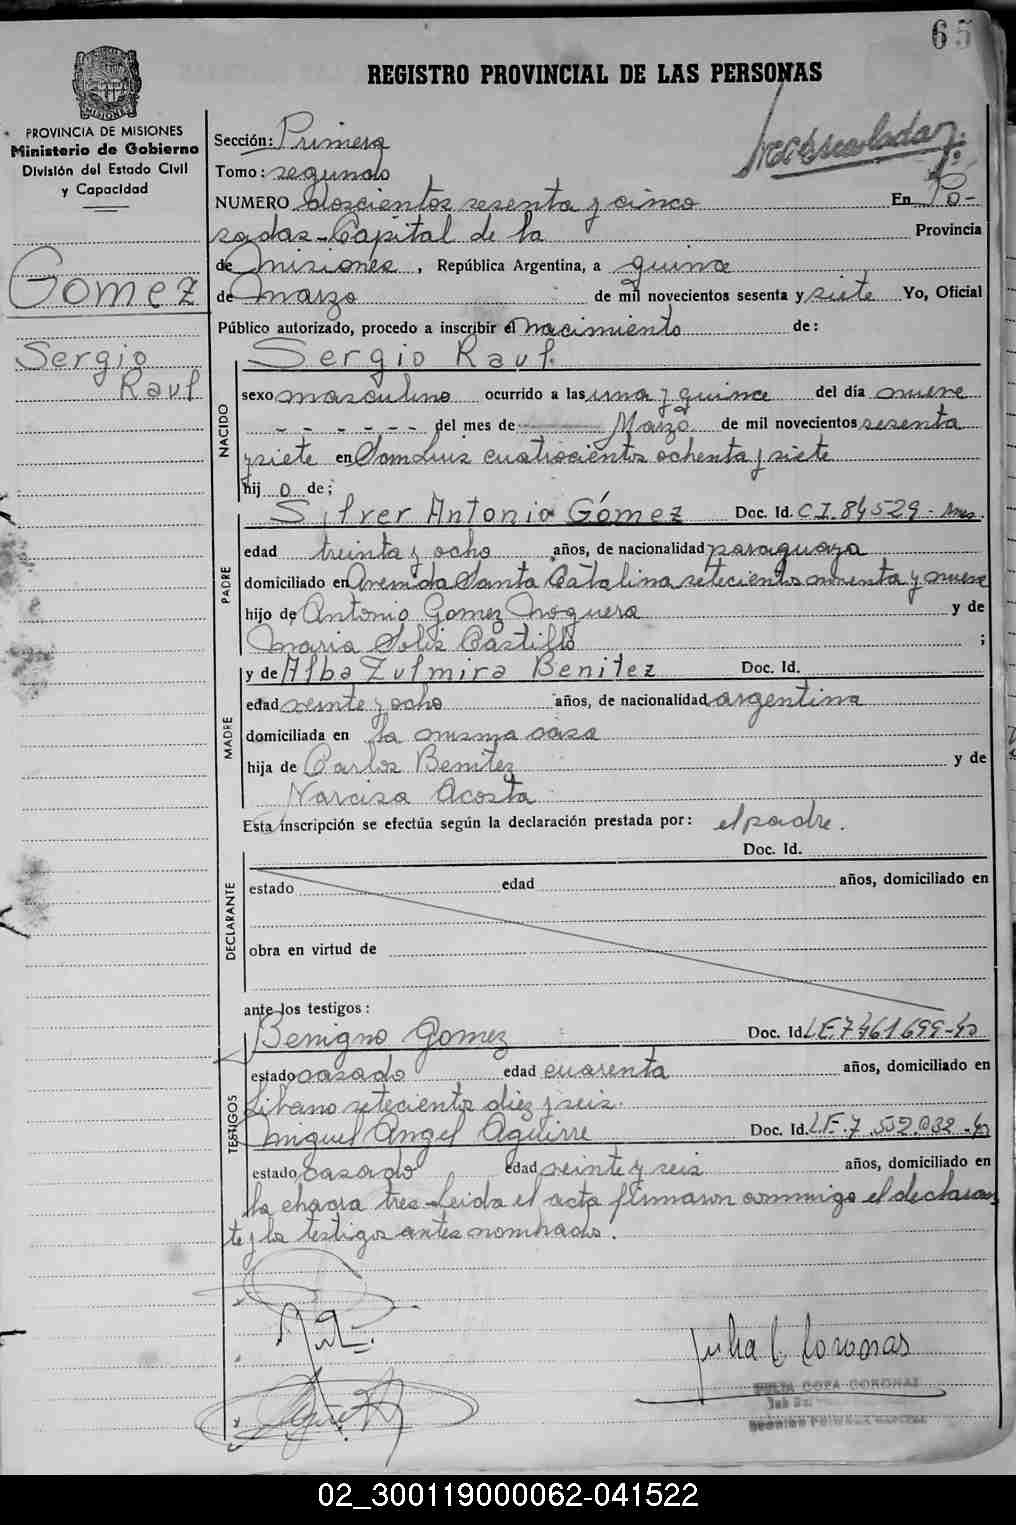 65
REGISTRO PROVINCIAL DE LAS PERSONAS
MISIONES
PROVINCIA DE MISIONES
Ministerio de Gobierno
División del Estado Civil
y Capacidad
Gomez
Sergio
Raul
Sección: Primera
Tomo: segundo
NUMERO doscientos sesenta y cinco En Po-
sadas - Capital de la Provincia
de Misiones, República Argentina, a quince
de Marzo de mil novecientos sesenta y siete Yo, Oficial
Público autorizado, procedo a inscribir el nacimiento de:
Sergio Raul.
NACIDO
sexo masculino ocurrido a las una y quince del día nueve
- - - - - - del mes de Marzo de mil novecientos sesenta
y siete en San Luis cuatrocientos ochenta y siete
hijo de;
PADRE
Silver Antonio Gómez Doc. Id. C.I. 84529 -
edad treinta y ocho años, de nacionalidad paraguaya
domiciliado en Avenida Santa Catalina setecientos noventa y nueve
hijo de Antonio Gomez Noguera y de
Maria Solis Castillo ;
y de Alba Zulmira Benitez Doc. Id.
MADRE
edad veinte y ocho años, de nacionalidad argentina
domiciliada en la misma casa
hija de Carlos Benitez y de
Narcisa Acosta
Esta inscripción se efectúa según la declaración prestada por: el padre.
Doc. Id.
DECLARANTE
estado edad años, domiciliado en
obra en virtud de
ante los testigos:
TESTIGOS
Benigno Gomez Doc. Id. L.E. 7461699-
estado casado edad cuarenta años, domiciliado en
Libano setecientos diez y seis.
Miguel Angel Aguirre Doc. Id. L.E. 7.552.032-
estado casado edad veinte y seis años, domiciliado en
la chacra tres - Leida el acta firmaron conmigo el declaran
te y los testigos antes nombrados.
Julia C. Coronas
JULIA COFA CORONAS
02_300119000062-041522